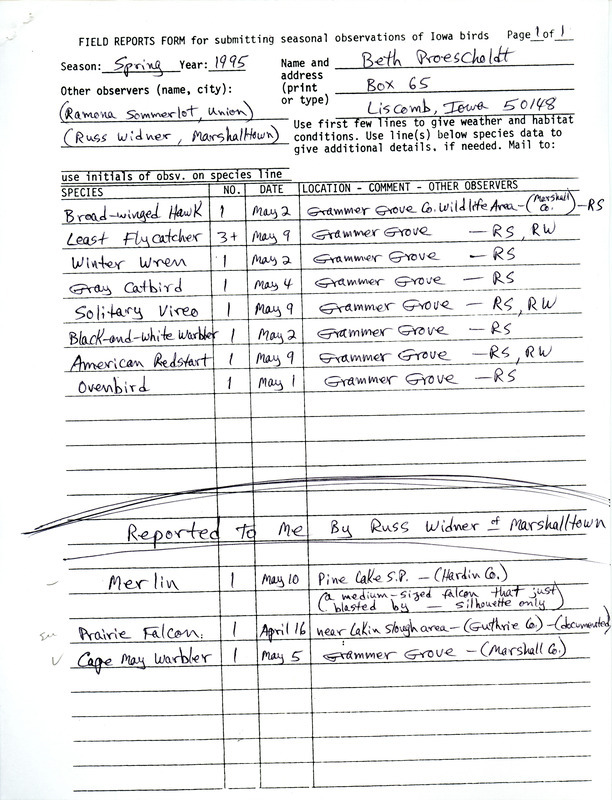 FIELD REPORTS FORM for submitting seasonal observations of Iowa birds Page 1 of 1
Season: Spring Year: 1995 Name and address (print or type) Beth Proescholdt
Box 65
Liscomb, Iowa 50148
Other observers (name, city):
(Ramona Sommerlot, Union)
(Russ Widner, Marshalltown)
Use first few lines to give weather and habitat
conditions. Use line(s) below species data to
give additional details. if needed. Mail to:
use initials of obsv. on species line
SPECIES NO. DATE LOCATION - COMMENT - OTHER OBSERVERS
Broad-winged Hawk 1 May 2 Grammer Grove Co. Wildlife Area - (Marshall Co.) - RS
Least Flycatcher 3+ May 9 Grammer Grove - RS, RW
Winter Wren 1 May 2 Grammer Grove - RS
Gray Catbird 1 May 4 Grammer Grove - RS
Solitary Vireo 1 May 9 Grammer Grove - RS, RW
Black-and-white Warbler 1 May 2 Grammer Grove - RS
American Redstart 1 May 9 Grammer Grove - RS, RW
Ovenbird 1 May 1 Grammer Grove - RS
Reported To Me By Russ Widner of Marshalltown
Merlin 1 May 10 Pine Lake S.P. - (Hardin Co.)
(a medium-sized falcon that just
blasted by - silhouette only)
Prairie Falcon. 1 April 16 near Lakin Slough area - (Guthrie Co) - (documented)
Cape May Warbler 1 May 5 Grammer Grove - (Marshall Co.)